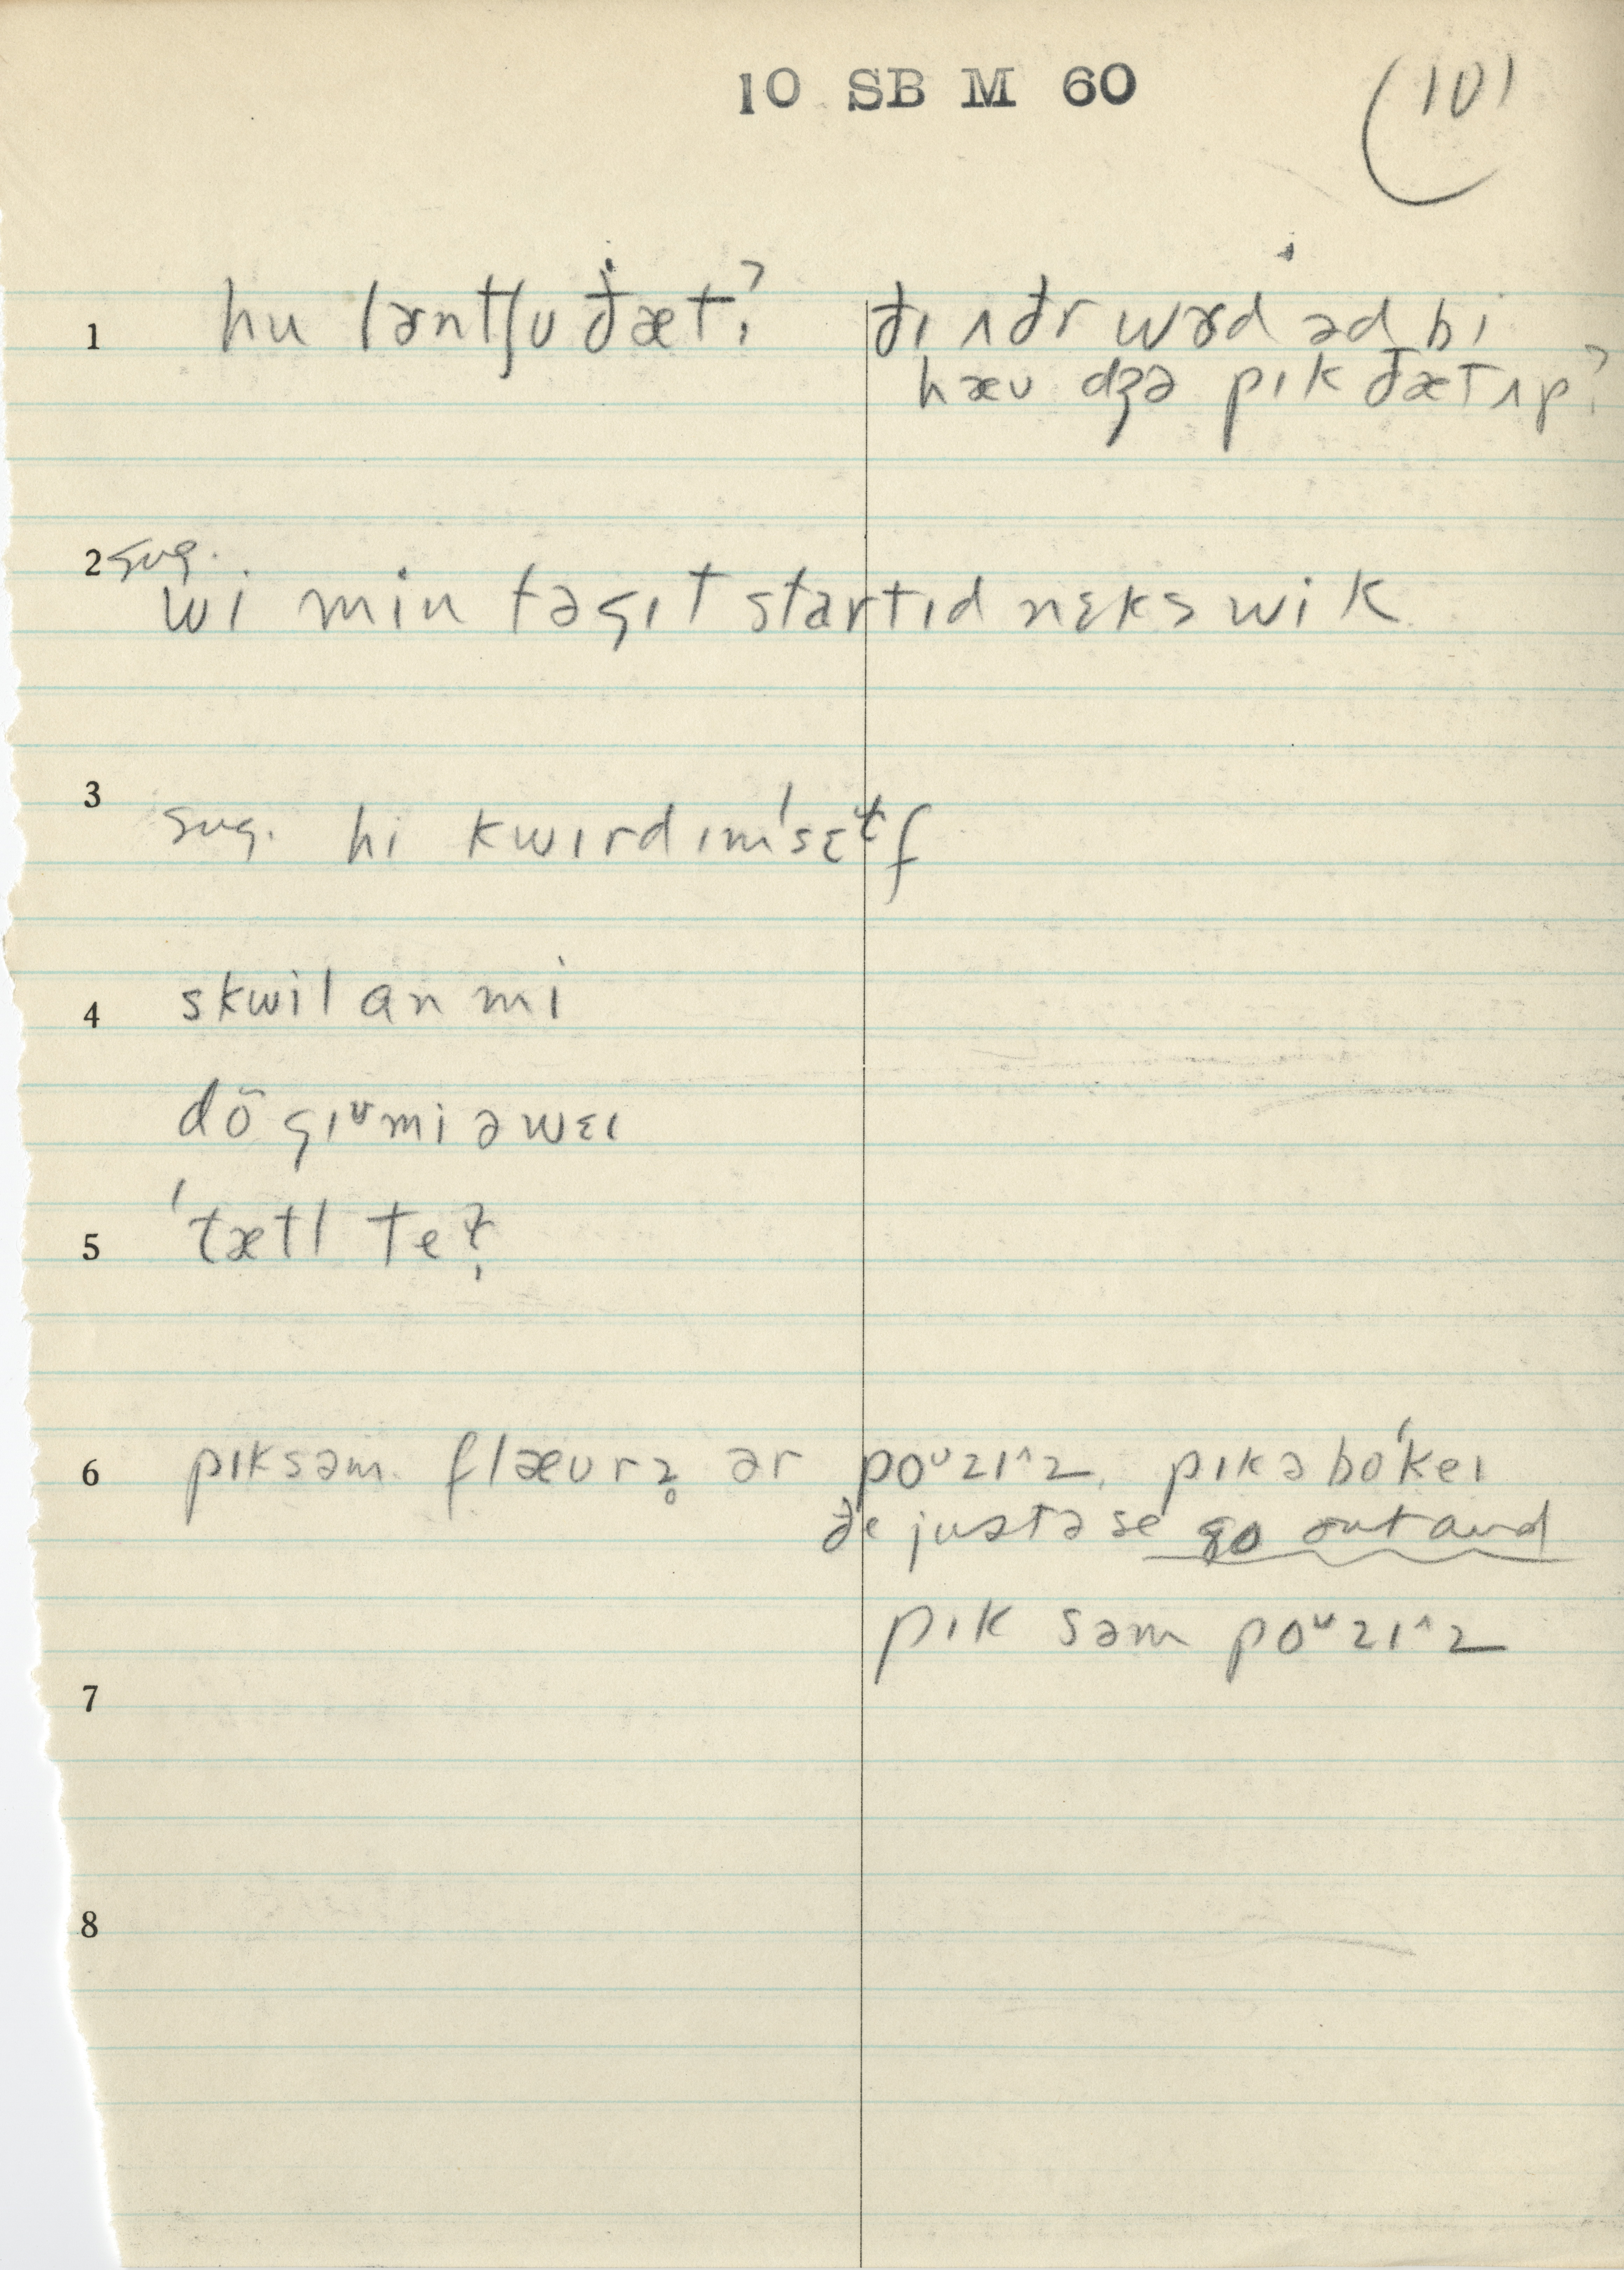 10 SB M 60
(101
1 hu lɚntʃʊ ðæt? ðɪ ʌðr wɚd əd bi
hæv dʒə pɪk ðæt ʌp?
2 sug.
wi min tə gɪt startɪd nɛks wik
3 sug. hi kwɪrd ɪm'sɛɫf
4 skwil an mi
dõ gɪᵛ mi əwɛɪ
5 'tætl te?
6 pɪk səm flæʊrz̥ ər poᵘzɪ^z, pɪk ə bo'keɪ
ðe justə se go out and
pɪk səm poᵘzɪ^z
7
8